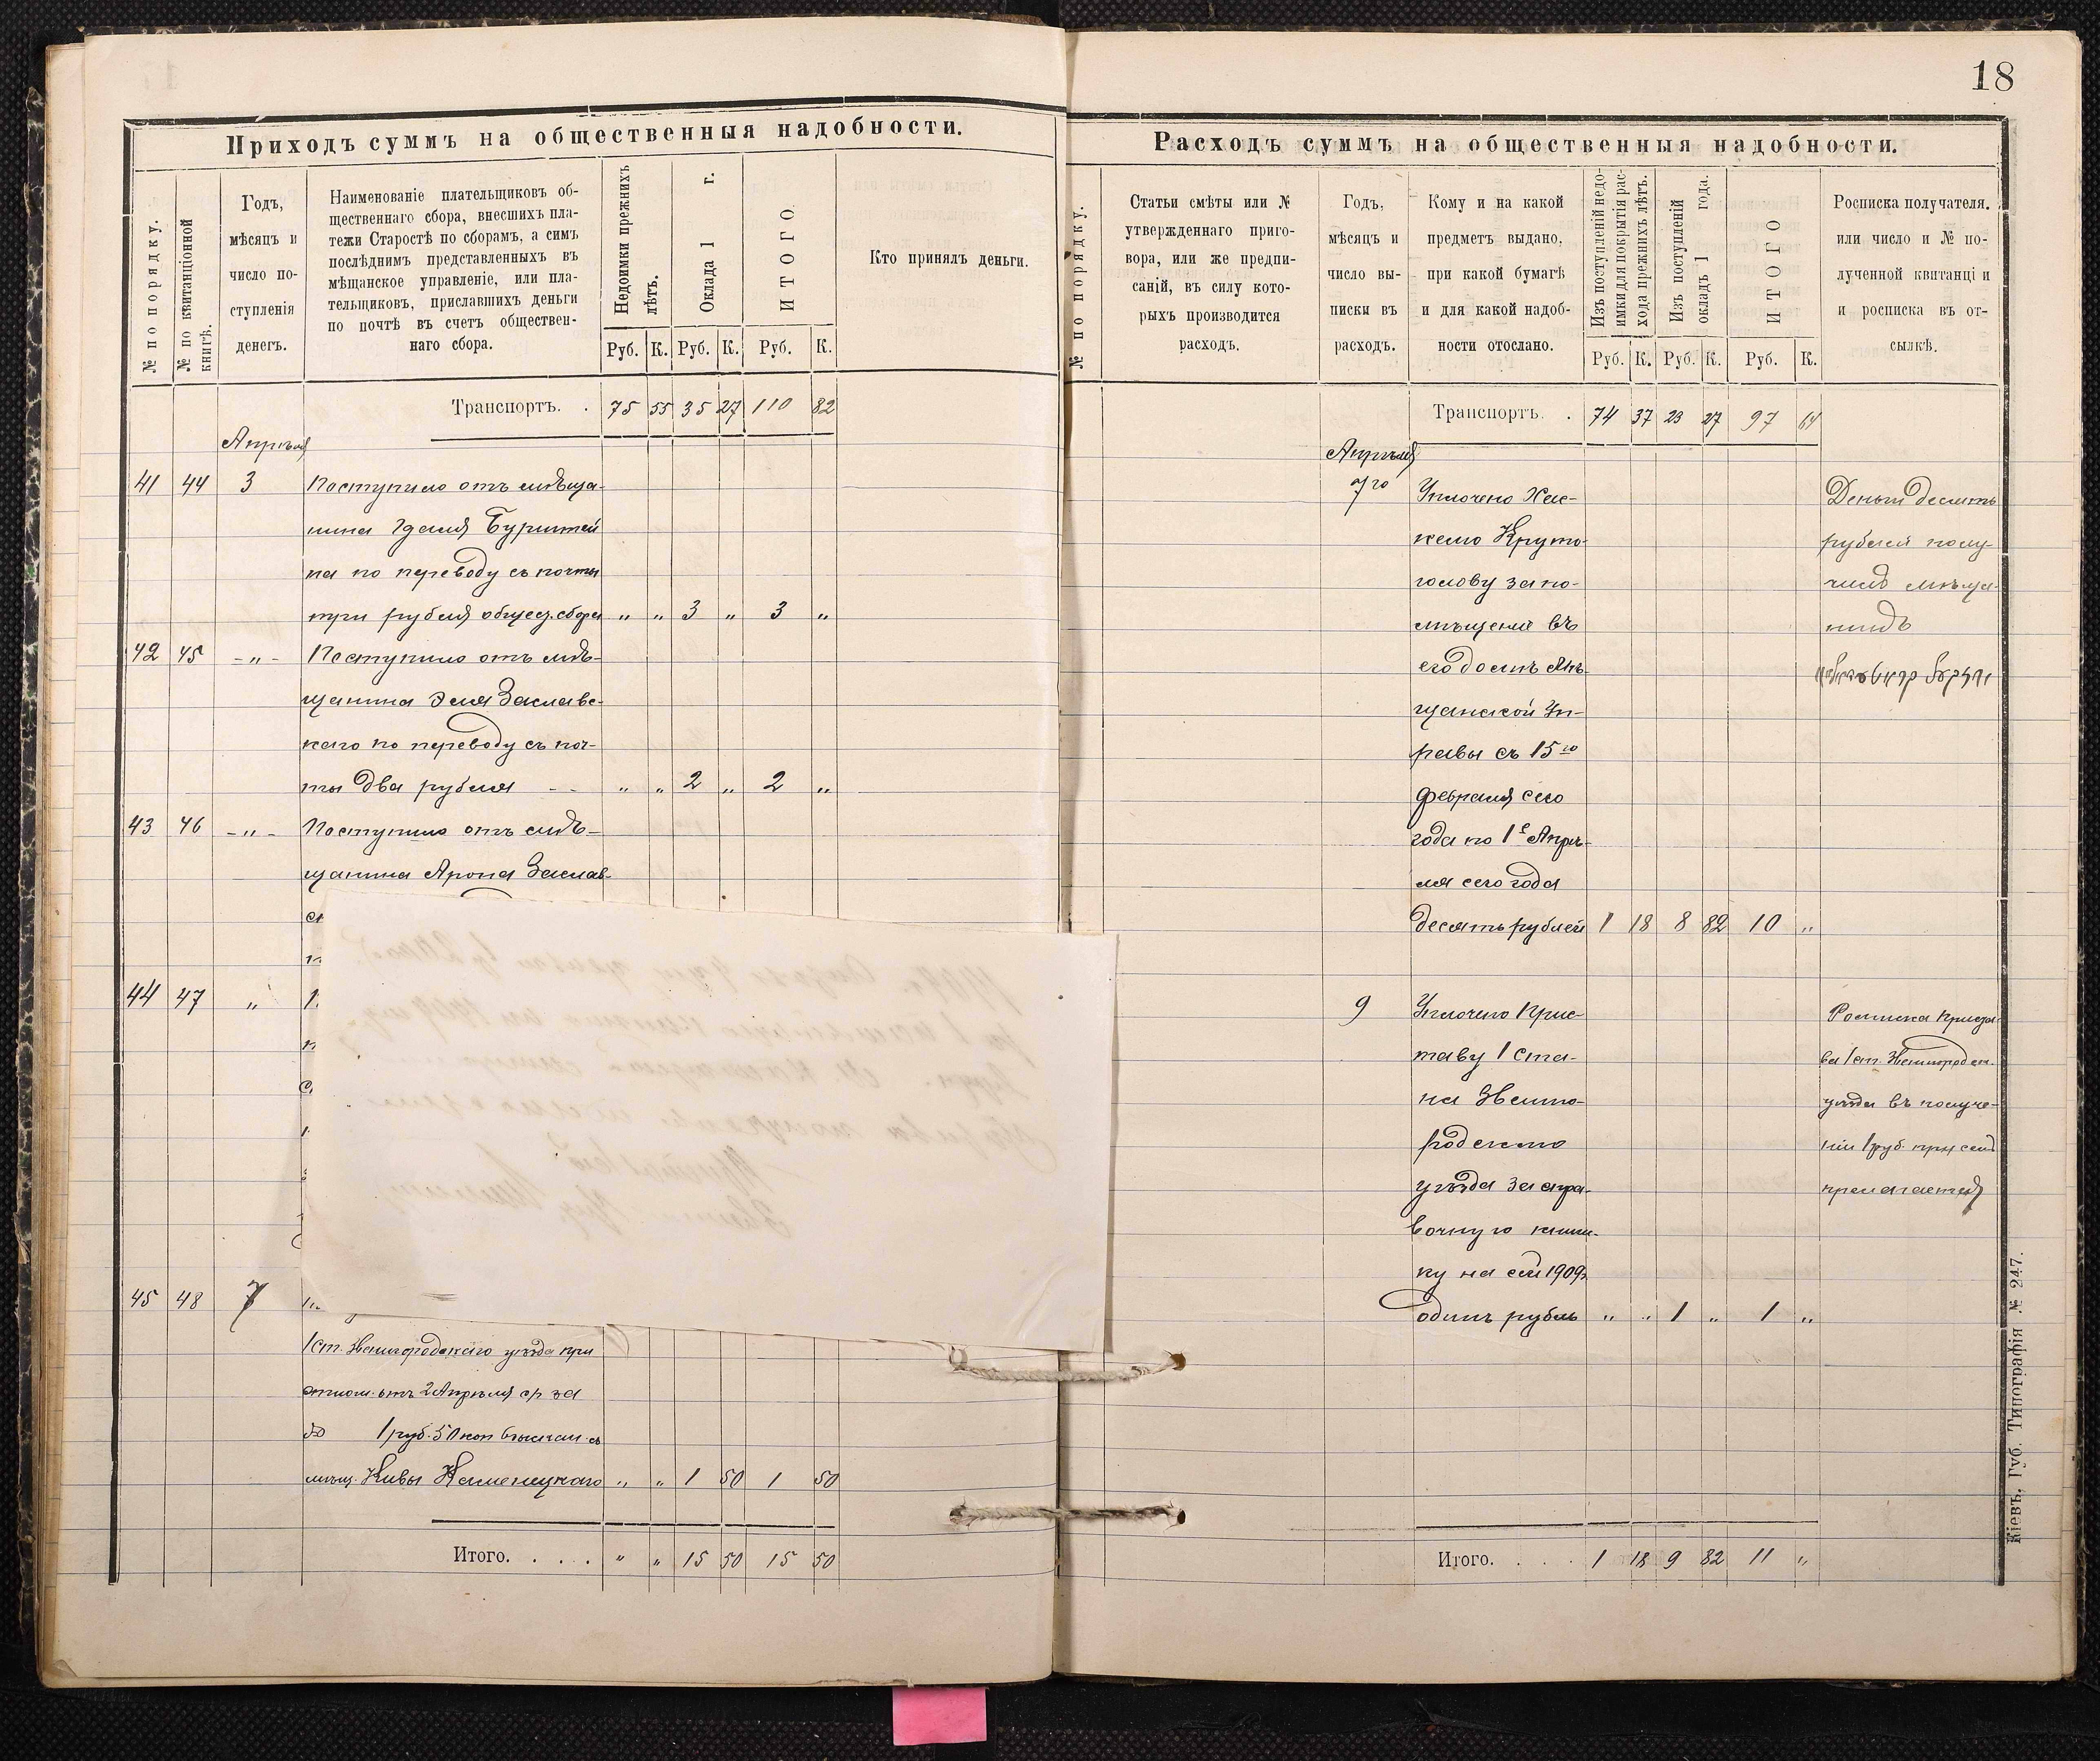 18
Приходъ суммъ на общественныя надобности.
№ по порядку.
№ по квитанціонной книгѣ.
Годъ,
мѣсяцъ и
число по-
ступленія
денегъ.
Наименованіе плательщиковъ об-
щественнаго сбора, внесшихъ пла-
тежи Старостѣ по сборамъ, а симъ
послѣднимъ представленныхъ въ
мѣщанское управленіе, или пла-
тельщиковъ, приславшихъ деньги
по почтѣ въ счетъ обществен-
наго сбора.
Недоимки прежнихъ
лѣтъ.
Оклада 1 г.
ИТОГО
Руб. К. Руб. К. Руб. К.
Кто принялъ деньги.
Транспортъ. . 75 55 35 27 110 82
Апрѣля
41 44 3 Поступило отъ мѣща-
нина Бурштей
на по переводу съ почты
три рубля общес. сбора „ „ 3 „ 3 „
42 45 -„- Поступило отъ мѣ-
щанина Эля Заславс-
каго по переводу съ поч-
ты два рубля - - „ „ 2 „ 2 „
43 46 -„- Поступило отъ мѣ-
щанина Арона Заслав-
44 47 „
45 48 7
1 ст. Звенигородскаго уѣзда при
отнош. отъ 2 Апрѣля с/г за
№ 1 руб. 50 коп взыскан. съ
мѣщ. Кивы Каменецкаго „ „ 1 50 1 50
Итого. . . . „ „ 15 50 15 50
Расходъ суммъ на общественныя надобности.
№ по порядку.
Статьи смѣты или №
утвержденнаго приго-
вора, или же предпи-
саній, въ силу кото-
рыхъ производится
расходъ.
Годъ,
мѣсяцъ и
число вы-
писки въ
расходъ.
Кому и на какой
предметъ выдано,
при какой бумагѣ
и для какой надоб-
ности отослано.
Изъ поступленій недо-
имки для покрытія рас-
хода прежнихъ лѣтъ.
Изъ поступленій
окладъ 1 года.
ИТОГО
Руб. К. Руб. К. Руб. К.
Росписка получателя.
или число и № по-
лученной квитанціи
и росписка въ от-
сылкѣ.
Транспортъ. . 74 37 23 27 97 64
Апрѣля
7го Уплочено Хас-
келю Круто-
голову за по-
мѣщеніе въ
его домѣ Мѣ-
щанской Уп-
равы съ 15го
февраля сего
года по 1е Апрѣ-
ля сего года
десять рублей 1 18 8 82 10 „
Деньги десять
рублей полу-
чилъ мѣща-
нинъ
9 Уплочено Прис-
таву 1 ста-
на Звениго-
родскаго
уѣзда за спра-
вочную книж-
ку на сей 1909 г.
одинъ рубль „ „ 1 „ 1 „
Росписка Приста-
ва 1 ст. Звенигородск.
уѣзда въ получе-
ніи 1 руб. при семъ
прилагается
Итого. . . . 1 18 9 82 11 „
Кіевъ, Губ. Типографія № 247.